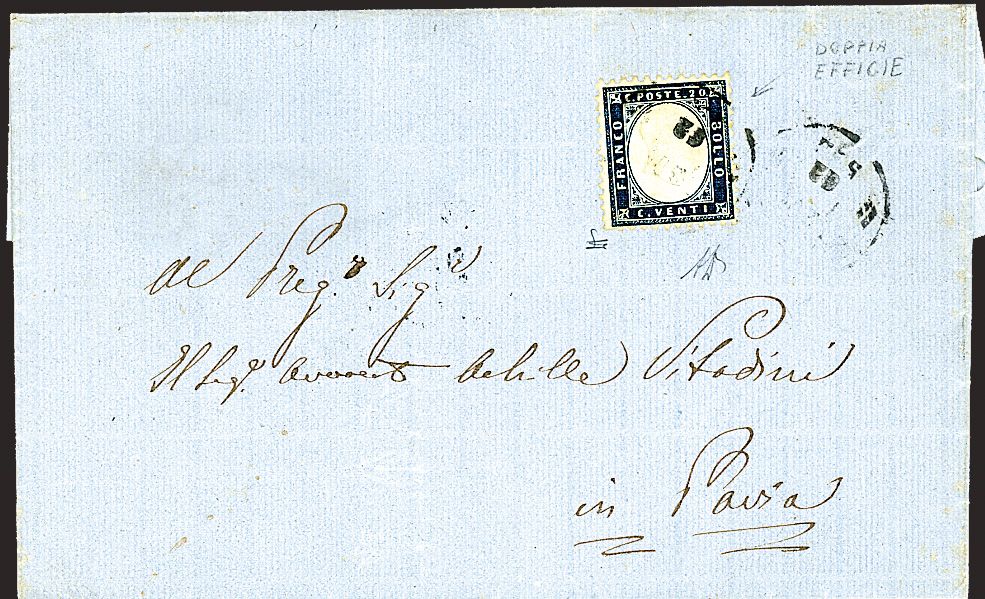 DOPPIA
EFFIGIE
C. POSTE. 20.
FRANCO
BOLLO
C. VENTI
62
5 24
62
Al Preg.º Sig.
Il Sig.r Avvocato Achille Vitadini
in Pavia